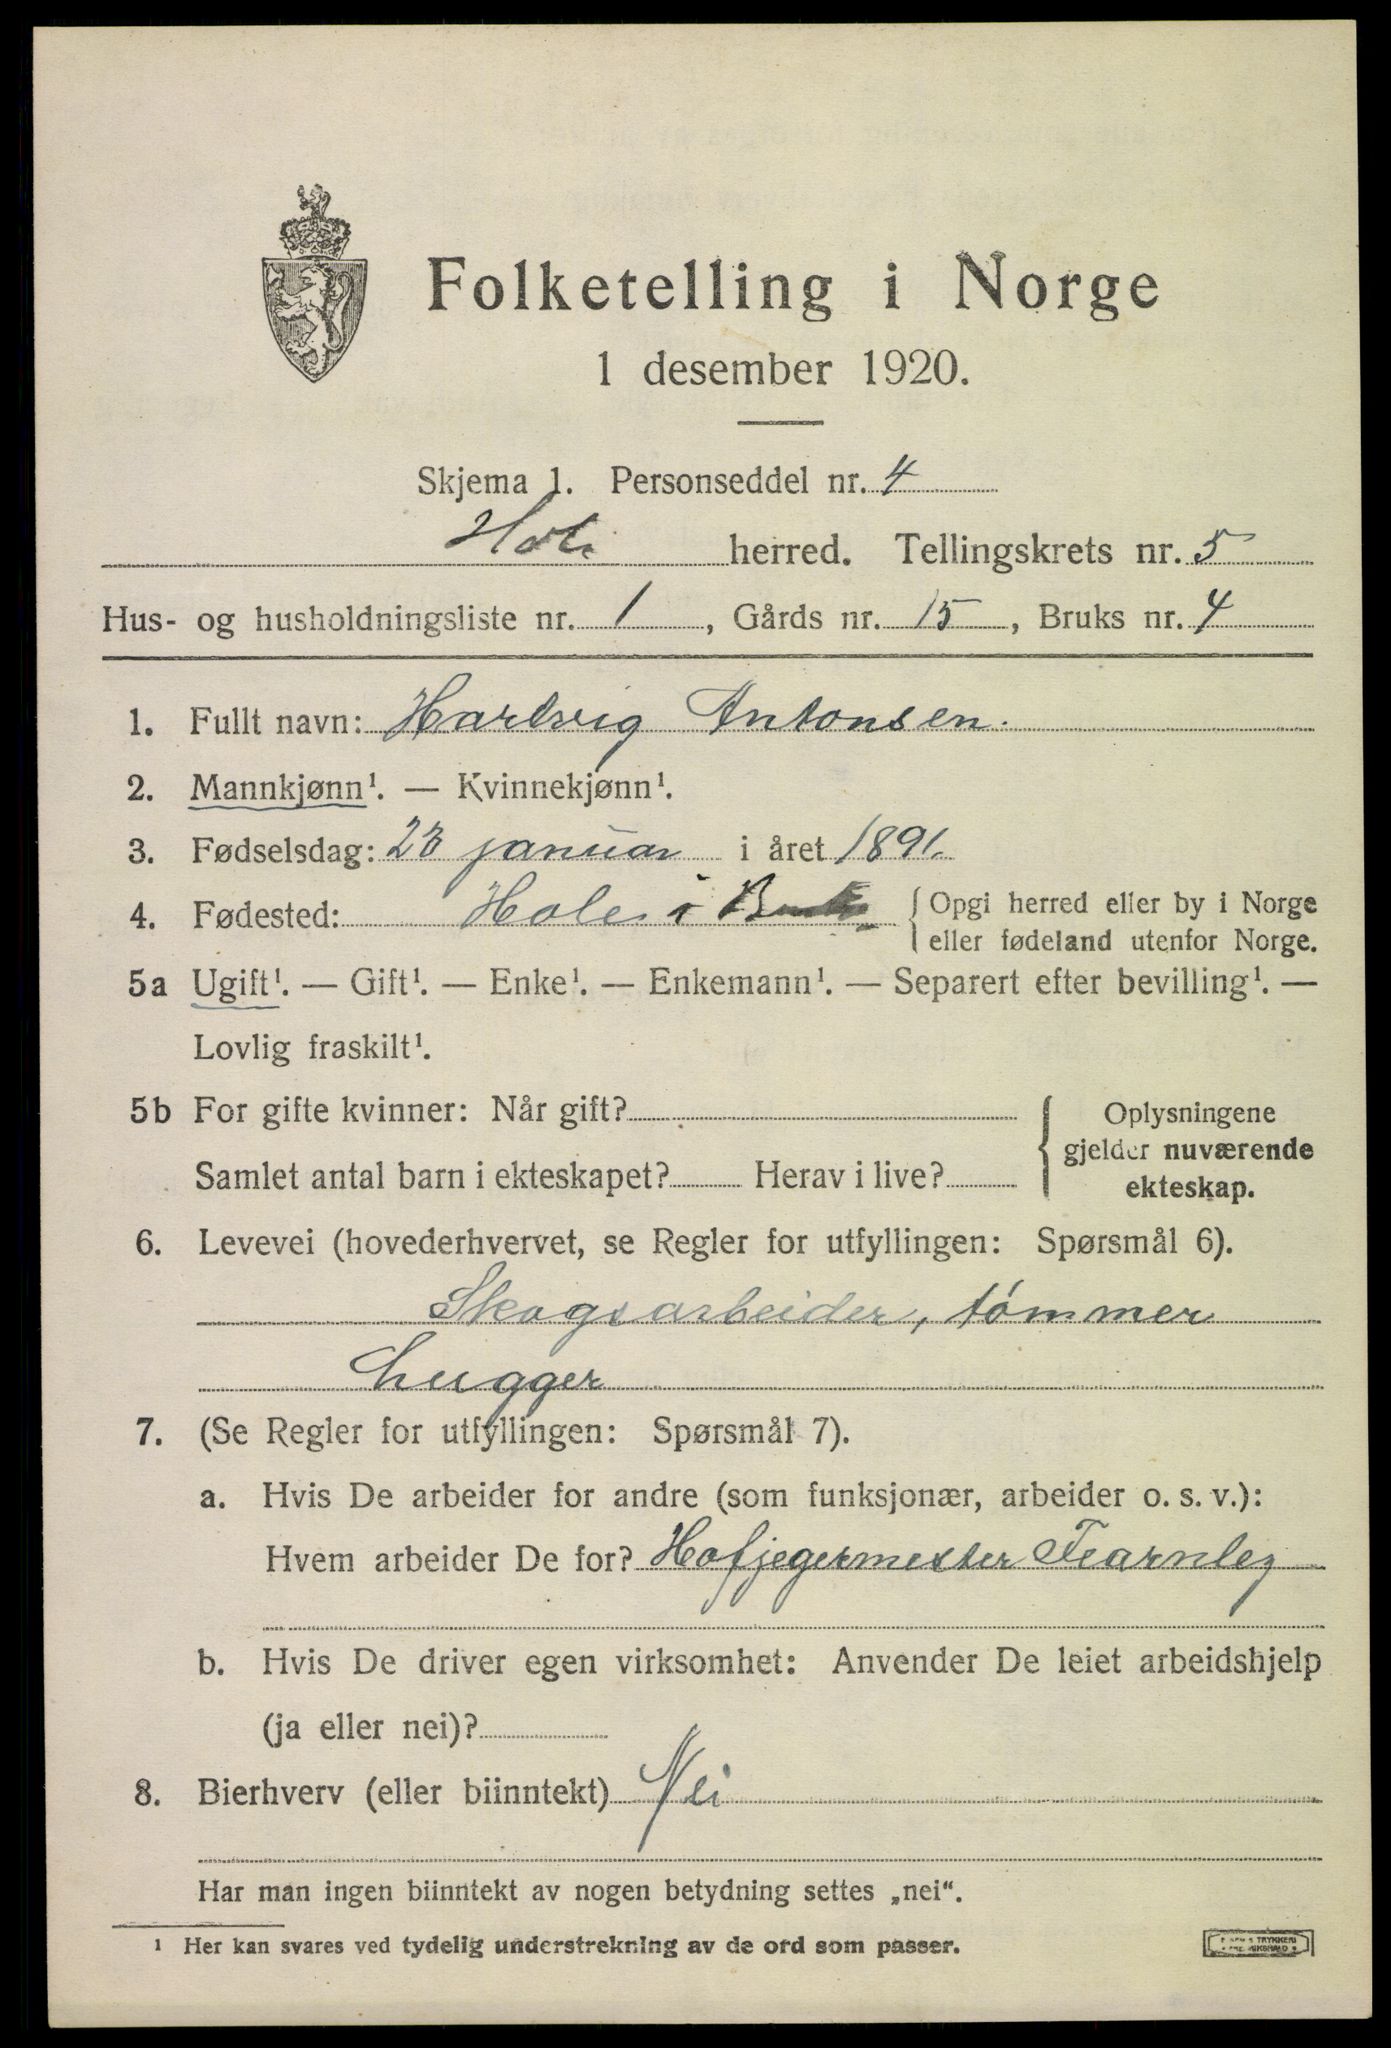 Folketelling i Norge
1 desember 1920.
Skjema 1. Personseddel nr. 4
Hole herred. Tellingskrets nr. 5
Hus- og husholdningsliste nr. 1, Gårds nr. 15, Bruks nr. 4
1. Fullt navn: Hartvig Antonsen.
2. Mannkjønn¹. — Kvinnekjønn¹.
3. Fødselsdag: 23 januar i året 1891.
4. Fødested: Hole i { Opgi herred eller by i Norge
eller fødeland utenfor Norge.
5a Ugift¹. — Gift¹. — Enke¹. — Enkemann¹. — Separert efter bevilling¹. —
Lovlig fraskilt¹.
5b For gifte kvinner: Når gift? { Oplysningene
gjelder nuværende
Samlet antal barn i ekteskapet? Herav i live? ekteskap.
6. Levevei (hovederhvervet, se Regler for utfyllingen: Spørsmål 6).
Skogsarbeider, tømmer
hugger
7. (Se Regler for utfyllingen: Spørsmål 7).
a. Hvis De arbeider for andre (som funksjonær, arbeider o. s. v.):
Hvem arbeider De for? Hofjegermester Fearnley
b. Hvis De driver egen virksomhet: Anvender De leiet arbeidshjelp
(ja eller nei)?
8. Bierhverv (eller biinntekt) Nei
Har man ingen biinntekt av nogen betydning settes „nei“.
¹ Her kan svares ved tydelig understrekning av de ord som passer.